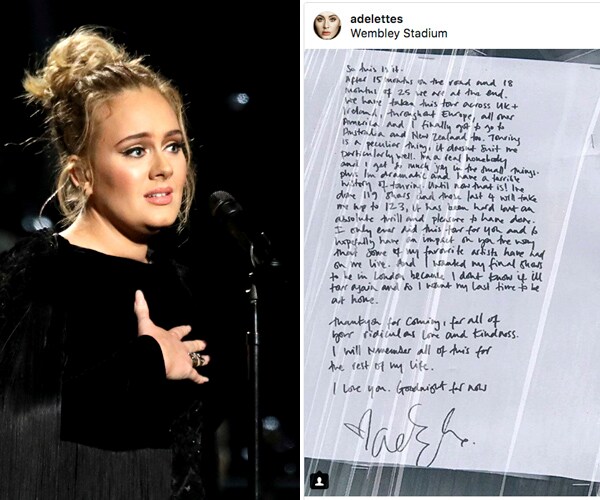 adelettes
Wembley Stadium
So this is it.
After 15 months on the road and 18
months of 25 we are at the end.
We have taken this tour across UK +
Ireland, throughout Europe, all over
America and I finally got to go to
Australia and New Zealand too. Touring
is a peculiar thing, it doesn't suit me
particularly well. I'm a real homebody
and I get so much joy in the small things.
plus I'm dramatic and have a terrible
history of touring. Until now that is! I've
done 119 shows and these last 4 will take
me up to 123, it has been hard but an
absolute thrill and pleasure to have done.
I only ever did this tour for you and to
hopefully have an impact on you the way
that some of my favorite artists have had
on me live. And I wanted my final shows
to be in London because I don't know if I'll
tour again and so I want my last time to be
at home.
Thankyou for coming, for all of
your ridiculous love and kindness.
I will remember all of this for
the rest of my life.
I love you. Goodnight for now
Adele